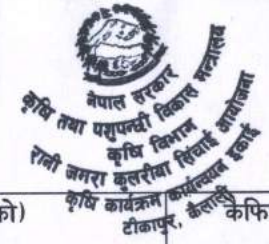 नेपाल सरकार
कृषि तथा पशुपन्छी विकास मन्त्रालय
कृषि विभाग
रानी जमरा कुलरीया सिंचाई आयोजना
कृषि कार्यक्रम कार्यान्वयन इकाई
टीकापुर, कैलाली
को)
कैफि